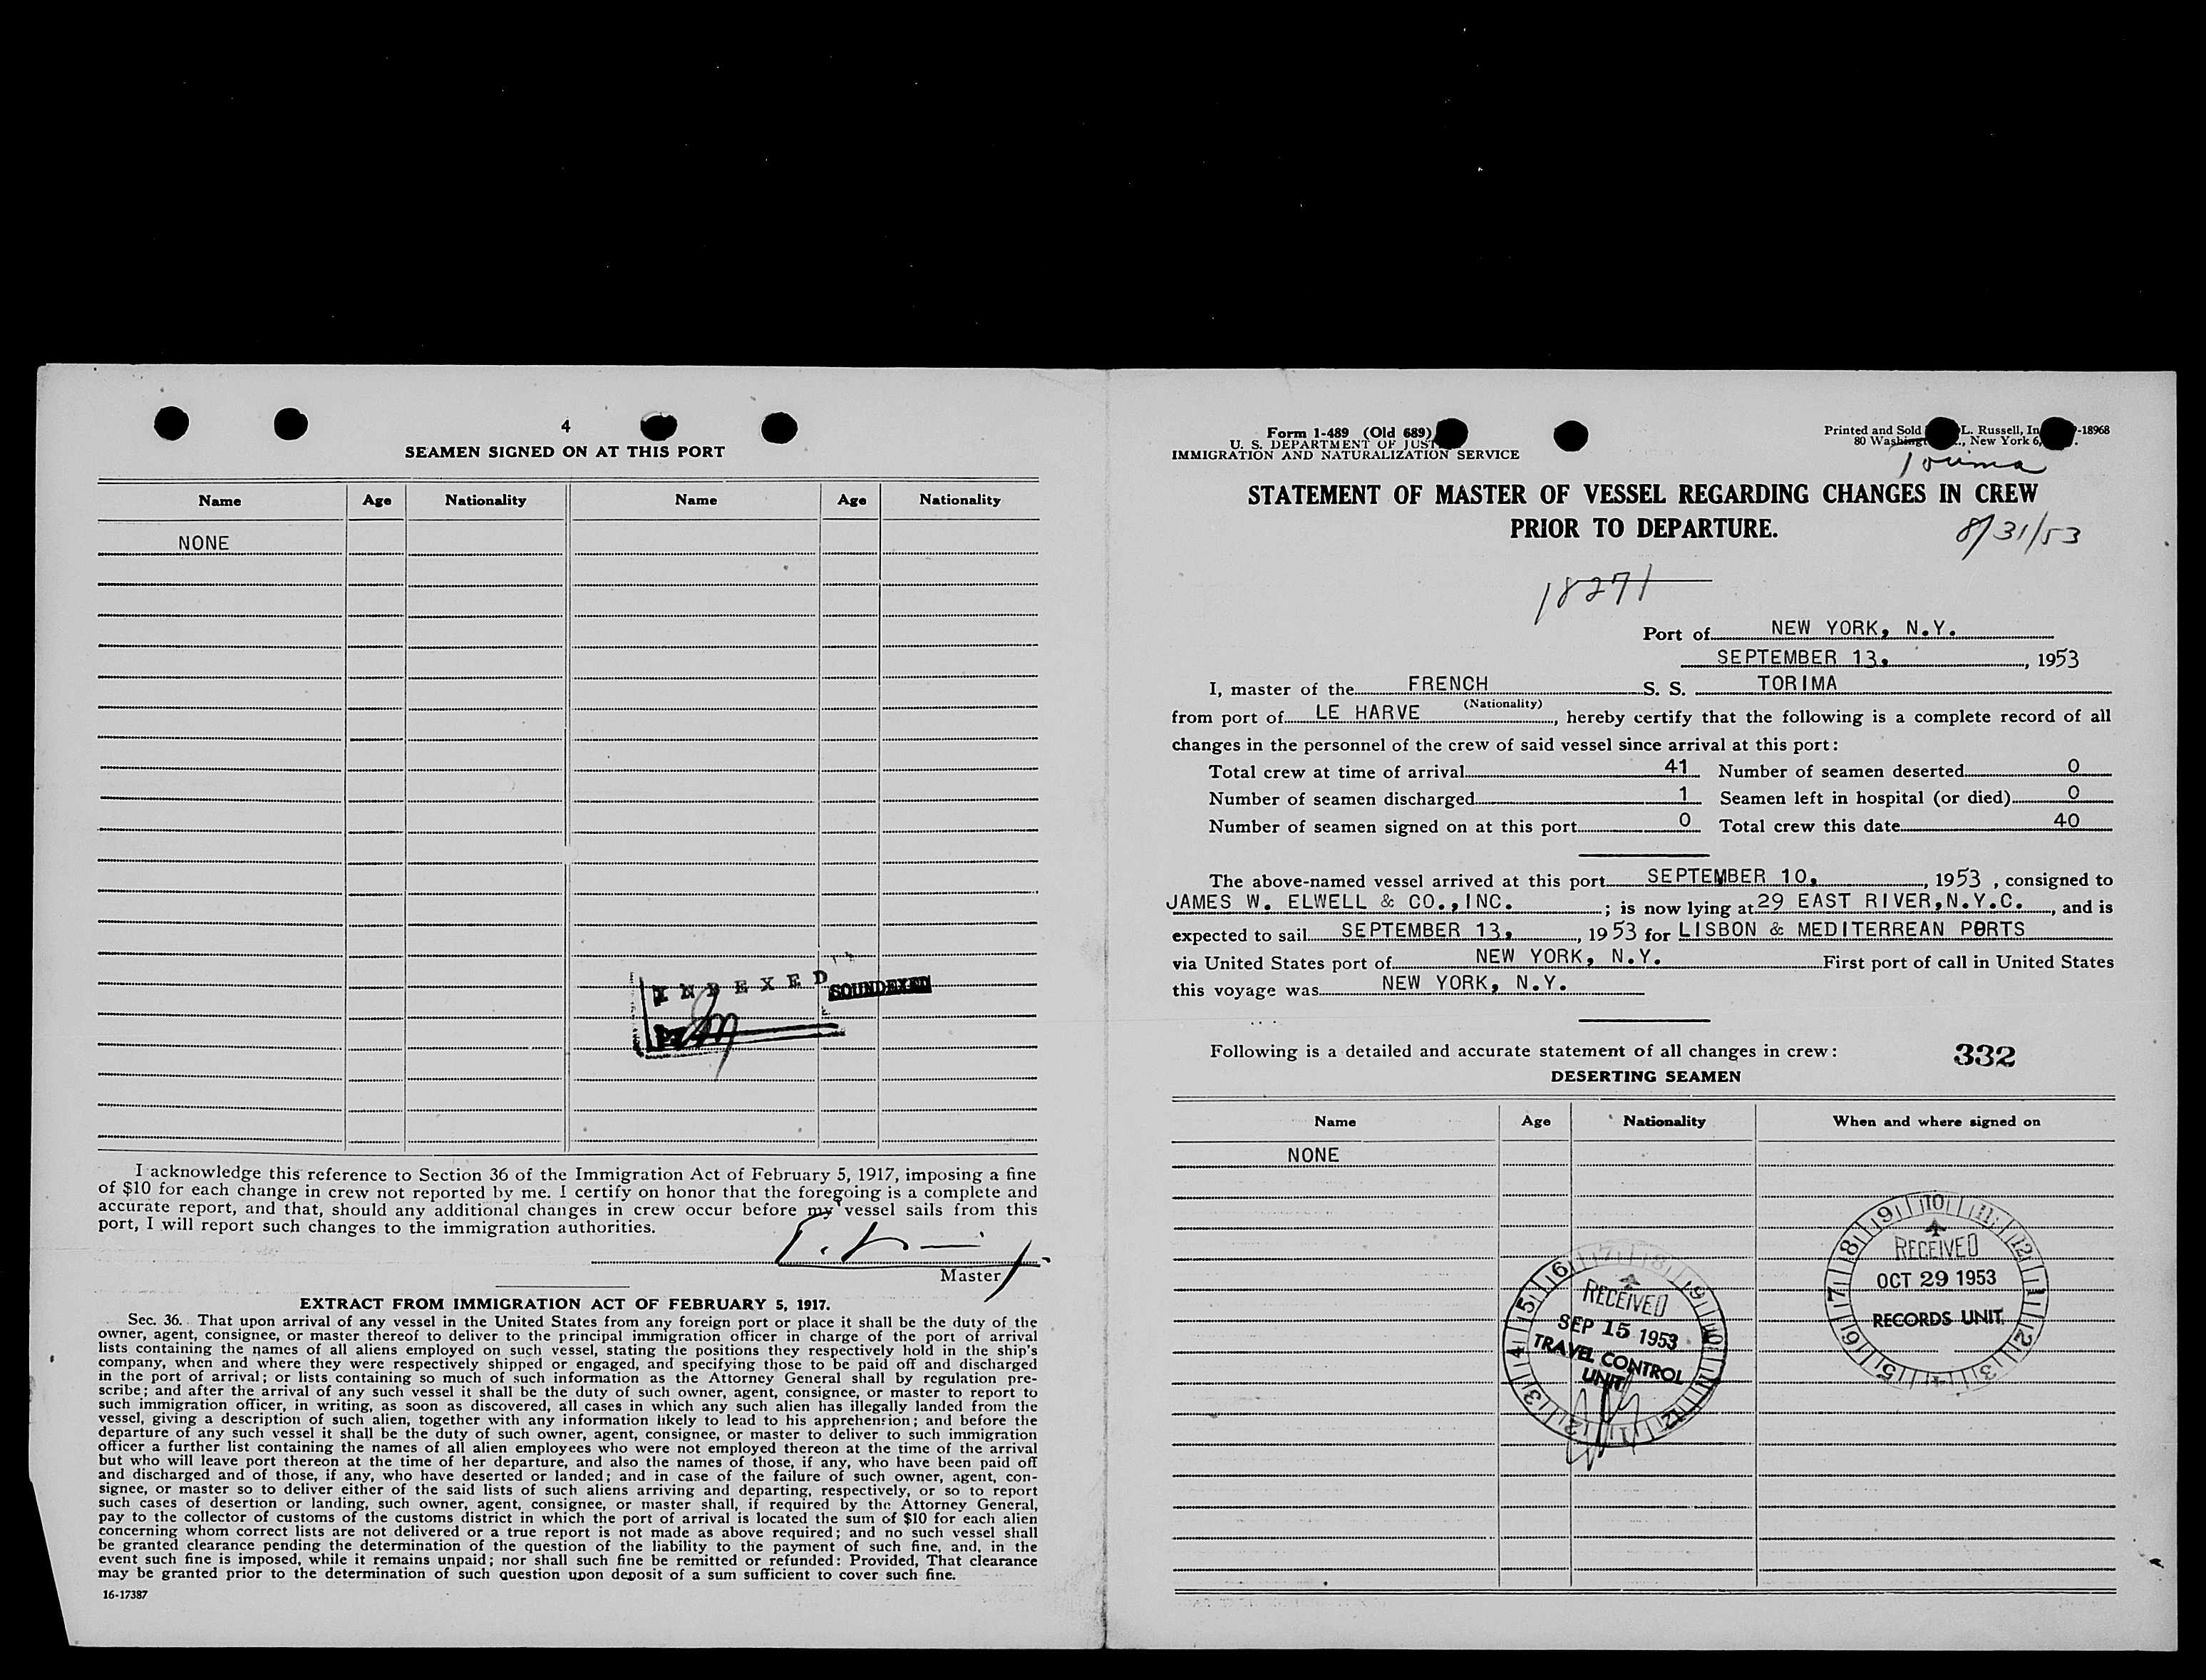 4
SEAMEN SIGNED ON AT THIS PORT
Name Age Nationality Name Age Nationality
NONE
INDEXED
SOUNDEXED
I acknowledge this reference to Section 36 of the Immigration Act of February 5, 1917, imposing a fine
of $10 for each change in crew not reported by me. I certify on honor that the foregoing is a complete and
accurate report, and that, should any additional changes in crew occur before my vessel sails from this
port, I will report such changes to the immigration authorities.
Master
EXTRACT FROM IMMIGRATION ACT OF FEBRUARY 5, 1917.
Sec. 36. That upon arrival of any vessel in the United States from any foreign port or place it shall be the duty of the
owner, agent, consignee, or master thereof to deliver to the principal immigration officer in charge of the port of arrival
lists containing the names of all aliens employed on such vessel, stating the positions they respectively hold in the ship's
company, when and where they were respectively shipped or engaged, and specifying those to be paid off and discharged
in the port of arrival; or lists containing so much of such information as the Attorney General shall by regulation pre-
scribe; and after the arrival of any such vessel it shall be the duty of such owner, agent, consignee, or master to report to
such immigration officer, in writing, as soon as discovered, all cases in which any such alien has illegally landed from the
vessel, giving a description of such alien, together with any information likely to lead to his apprehension; and before the
departure of any such vessel it shall be the duty of such owner, agent, consignee, or master to deliver to such immigration
officer a further list containing the names of all alien employees who were not employed thereon at the time of the arrival
but who will leave port thereon at the time of her departure, and also the names of those, if any, who have been paid off
and discharged and of those, if any, who have deserted or landed; and in case of the failure of such owner, agent, con-
signee, or master so to deliver either of the said lists of such aliens arriving and departing, respectively, or so to report
such cases of desertion or landing, such owner, agent, consignee, or master shall, if required by the Attorney General,
pay to the collector of customs of the customs district in which the port of arrival is located the sum of $10 for each alien
concerning whom correct lists are not delivered or a true report is not made as above required; and no such vessel shall
be granted clearance pending the determination of the question of the liability to the payment of such fine, and, in the
event such fine is imposed, while it remains unpaid; nor shall such fine be remitted or refunded: Provided, That clearance
may be granted prior to the determination of such question upon deposit of a sum sufficient to cover such fine.
16-17387
Form 1-489 (Old 689)
U. S. DEPARTMENT OF JUST
IMMIGRATION AND NATURALIZATION SERVICE
Printed and Sold L. Russell, In -18968
80 Washingt ., New York 6, .
Torima
STATEMENT OF MASTER OF VESSEL REGARDING CHANGES IN CREW
PRIOR TO DEPARTURE.
8/31/53
18271
Port of NEW YORK, N.Y.
SEPTEMBER 13, , 1953
I, master of the FRENCH S. S. TORIMA
(Nationality)
from port of LE HARVE , hereby certify that the following is a complete record of all
changes in the personnel of the crew of said vessel since arrival at this port:
Total crew at time of arrival 41 Number of seamen deserted 0
Number of seamen discharged 1 Seamen left in hospital (or died) 0
Number of seamen signed on at this port 0 Total crew this date 40
The above-named vessel arrived at this port SEPTEMBER 10, , 1953 , consigned to
JAMES W. ELWELL & CO.,INC. ; is now lying at 29 EAST RIVER,N.Y.C. , and is
expected to sail SEPTEMBER 13, , 1953 for LISBON & MEDITERREAN PORTS
via United States port of NEW YORK, N.Y. First port of call in United States
this voyage was NEW YORK, N.Y.
Following is a detailed and accurate statement of all changes in crew: 332
DESERTING SEAMEN
Name Age Nationality When and where signed on
NONE
6 7 8 9 10 11 12 1 2 3 4 5
RECEIVED
SEP 15 1953
TRAVEL CONTROL
UNIT
9 10 11 12 1 2 3 4 5 6 7 8
RECEIVED
OCT 29 1953
RECORDS UNIT